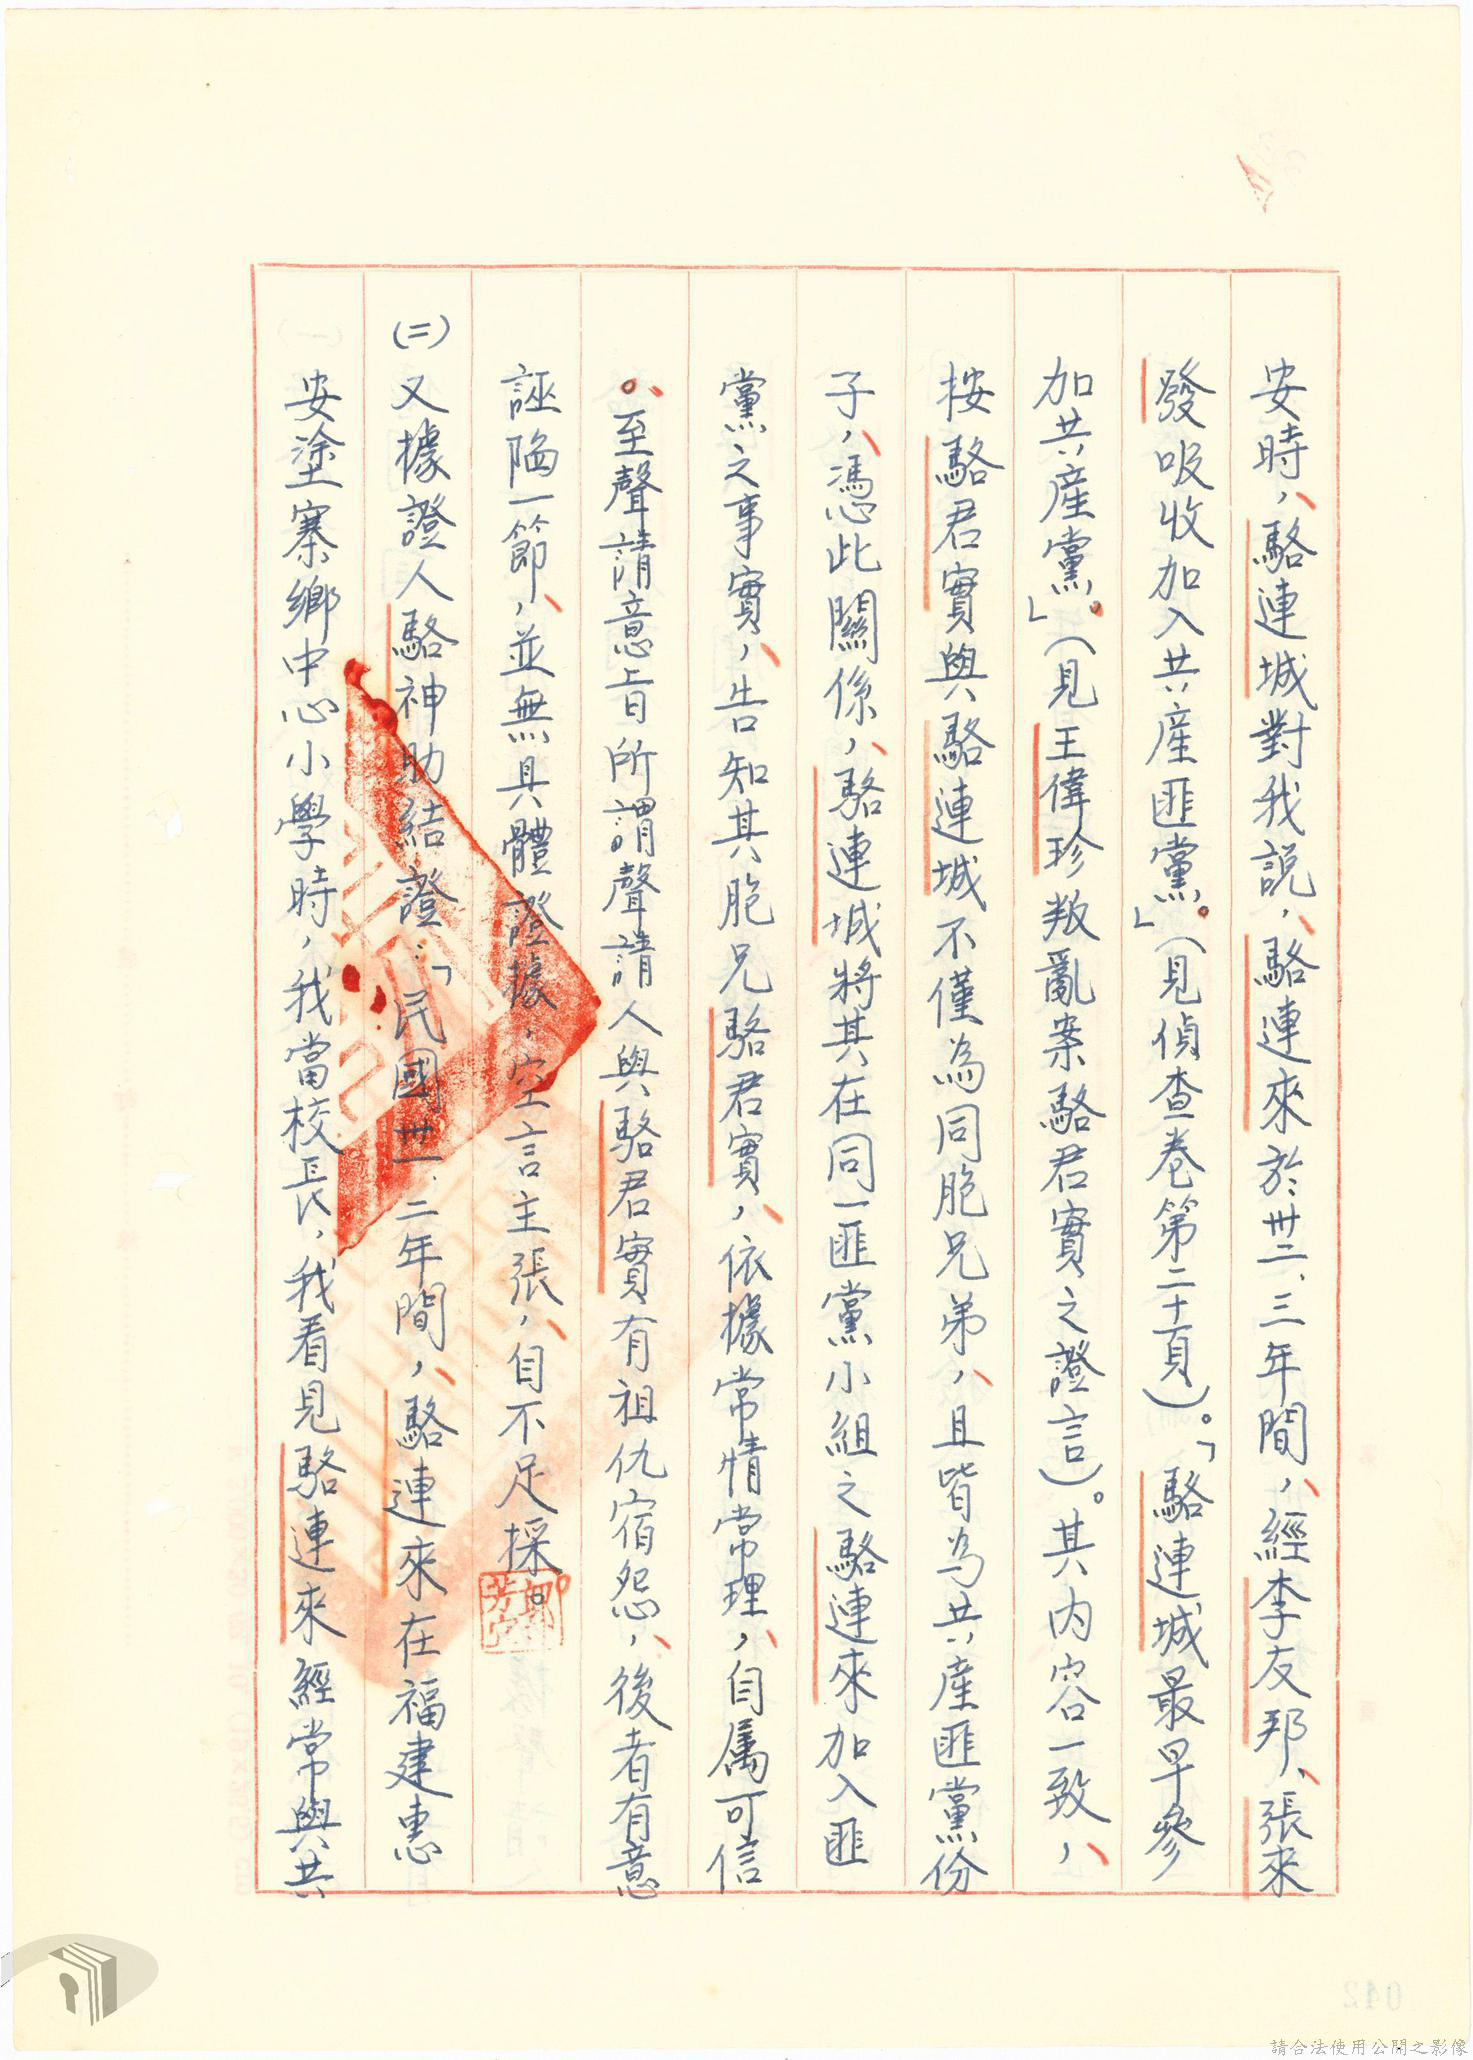 安時，駱連城對我說，駱連來於卅二、三年間，經李友邦、張來
發吸收加入共產匪黨。」（見偵查卷第二十頁）。「駱連城最早參
加共產黨。」（見王偉珍叛亂案駱君實之證言）。其內容一致，
按駱君實與駱連城不僅為同胞兄弟，且皆為共產匪黨份
子，憑此關係，駱連城將其在同一匪黨小組之駱連來加入匪
黨之事實，告知其胞兄駱君實，依據常情常理，自屬可信
。至聲請意旨所謂聲請人與駱君實有祖仇宿怨，後者有意
誣陷一節，並無具體證據，空言主張，自不足採。
（二）又據證人駱神助結證：「民國卅一、二年間，駱連來在福建惠
安塗寨鄉中心小學時，我當校長，我看見駱連來經常與共
042
請合法使用公開之影像